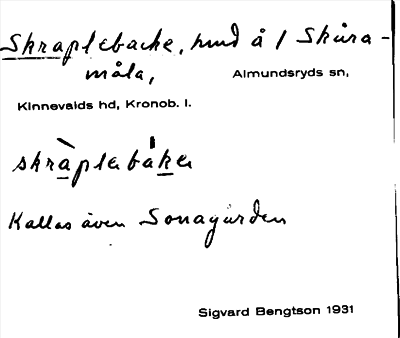 Skraplebacke, hmd å / Skåra-
måla, Almundsryds sn,
Kinnevalds hd, Kronob. l.
skrà̱pleba̍ḵer
Kallas även Sonagården
Sigvard Bengtson 1931